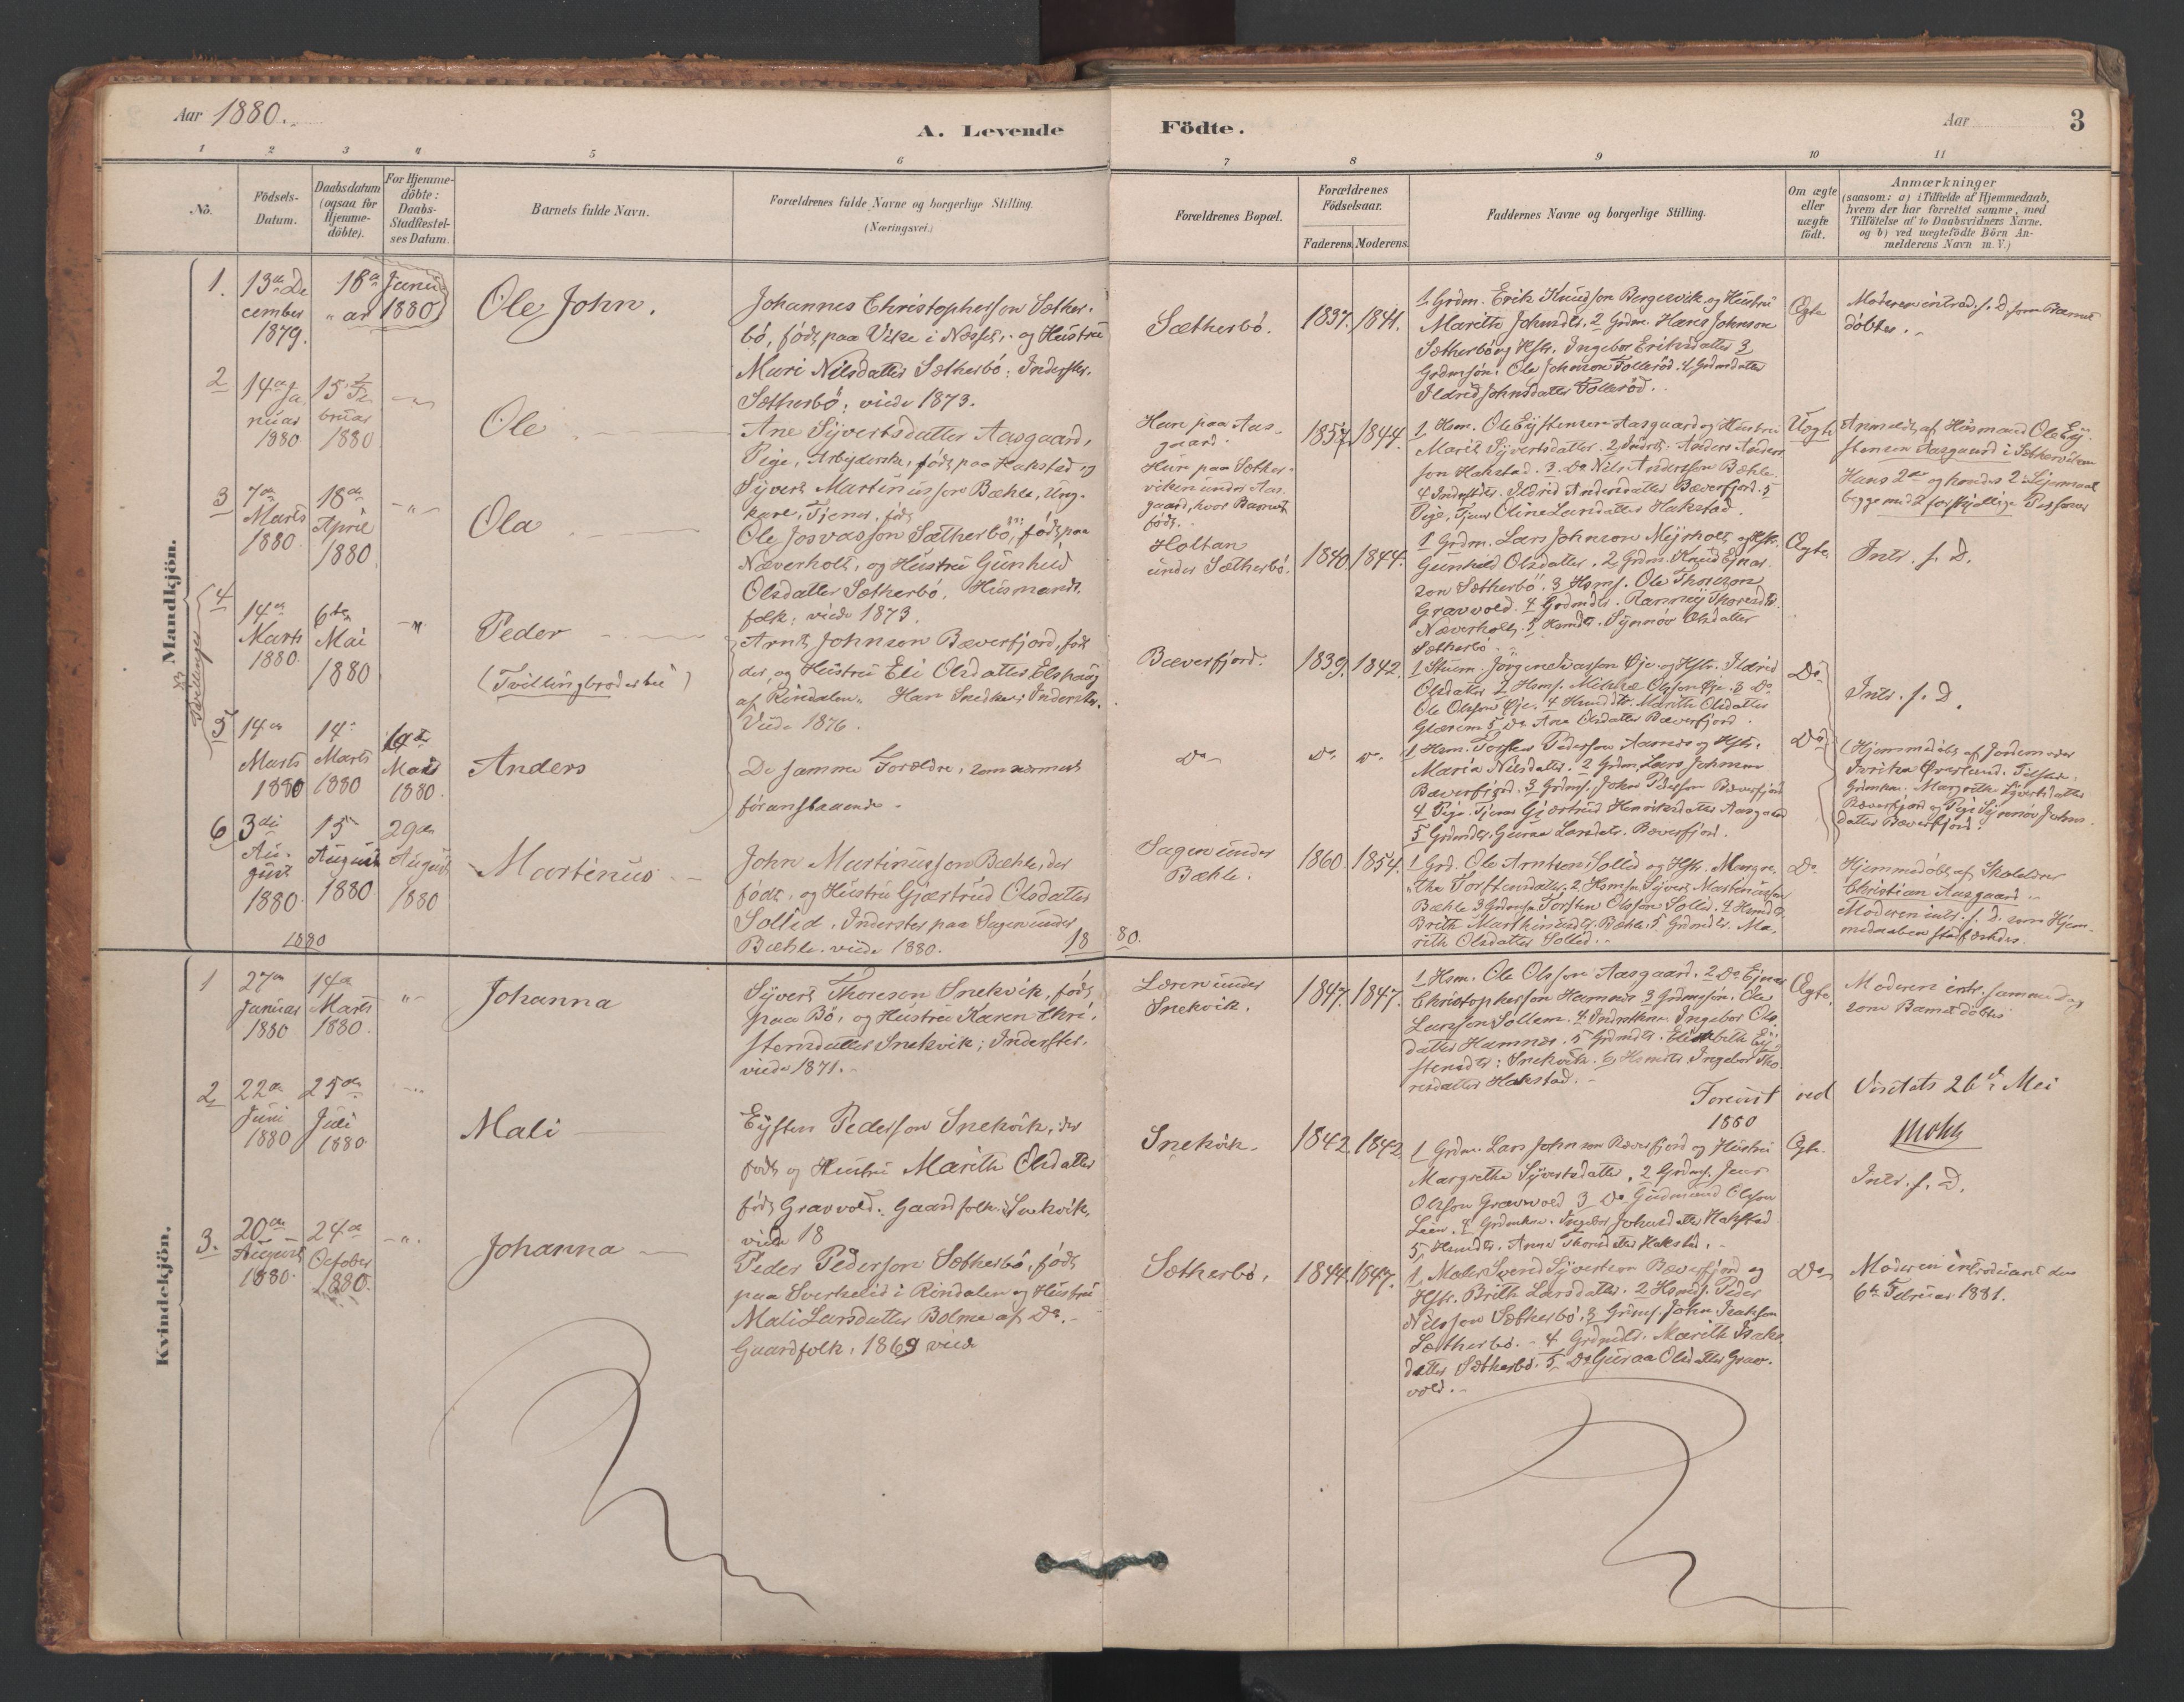 Aar 1880.
A. Levende Födte.
Aar
3
1 2 3 4 5 6 7 8 9 10 11
No.
Födsels-
Datum.
Daabsdatum
(ogsaa for
Hjemme-
döbte).
For Hjemme-
döbte:
Daabs-
Stadfæstel-
ses Datum.
Barnets fulde Navn.
Forældrenes fulde Navne og borgerlige Stilling.
(Næringsvei.)
Forældrenes Bopæl.
Forældrenes
Födselsaar.
Faderens. Moderens.
Faddernes Navne og borgerlige Stilling.
Om ægte
eller
uægte
födt.
Anmærkninger
(saasom: a) i Tilfælde af Hjemmedaab,
hvem der har forrettet samme, med
Tilföielse af to Daabsvidners Navne.
og b) ved uægtefödte Börn An-
melderens Navn m. V.)
Mandkjön.
1.
13de De
cember
1879.
18de Janu
ar 1880
Ole John.
Johannes Christophersson Sæther-
bö, födt paa Vike i Nesset, og Hustru
Mari Nilsdatter Sætherbö: Inderster.
Sætherbö; viede 1873.
Sætherbö.
1837. 1841.
1 Grdm. Erik Knudsson Bergesvik og Hustru
Marith Johnsdtr. 2 Grdm. Hans Johnson
Sætherbö og Hstr. Ingebor Eriksdatter 3
Grdmsön Ole Johnson Tollerød. 4 Grdmdatter
Ildrid Johnsdatter Tollerød.
Ægte
Moderen introd. s. D. som Barnet
döbtes.
2
14de Ja
nuar
1880
15de Fe
bruar
1880
Ole
Ane Sivertsdatter Aasgaard,
Pige, Arbyderske, födt paa Hakstad og
Sivert Martinusson Bæhle, Ung-
kare, Tjener, födt
Hun paa Aas-
gaard.
Hun paa Sæther-
viken under Aas-
gaard, hvor Barnet
födt.
1857. 1844.
1 Hsm. Ole Eystensen Aasgaard og Hustru
Marit Sivertsdatter. 2 Anders Anders
son Hakstad. 3 Do Nils Andersson Bæhle
4 Ildrid Andersdatter Bæverfjord. 5
Pige, Tjener Oline Larsdatter Hakstad.
Uægte
Anmeldt af Husmand Ole Ey-
stensen Aasgaard i Sætherviken
Hans 2det og hendes 2det Leiermaal
begge med 2 forskjellige Personer
3
7de
Marts
1880
18de
April
1880
Ola
Ole Josvasson Sætherbö, födt paa
Næverholt, og Hustru Gunhild
Olsdatter Sætherbö, Husmands-
folk; viede 1873.
Holtan
under Sætherbö.
1840. 1844.
1 Grdm. Lars Johnson Myrholt og Hstr.
Gunhild Olsdatter. 2 Grdm. Knud Ejnar
son Sætherbö. 3 Hsms. Ole Thoreson
Gravvold. 4 Grdmdtr. Rannei Thoresdtr.
Næverholt. 5 Hsmdtr. Synnöv Olsdatter
Sætherbö.
Ægte.
Intr. s. D.
Tvillinger
4
14de
Marts
1880.
6te
Mai
1880
Peder
(Tvillingbroder til)
Arnt Johnson Bæverfjord, födt
der, og Hustru Eli Olsdatter Elshaug
af Rindalen. Han Snedker; Inderster.
Viede 1876.
Bæverfjord.
1839. 1842.
Olsdatter 2 Hsms. Mikkel Olsson Øye. 3 Do
Ole Olsson Øye. 4 Hsmdtr. Marith Olsdatter
Glærem. 5 Do Ane Olsdatter Bæverfjord.
Do
Intr. s. D.
5
14de
Marts
1880
14de
Marts
1880
Mai
1880.
Anders
De samme Forældre, som nærmest
foranstaaende.
Do Do Do
1 Hsm. Torsten Pederson Aamnes og Hstr.
Maria Nilsdatter. 2 Grdm. Lars Johnson
Bæverfjord. 3 Grdms. John Pederson Bæverfjord
4 Pige, Tjener Gjertrud Henriksdatter Aasgaard
5 Grdmdtr. Guraa Larsdatr. Bæverfjord.
Do
(Hjemmedöbt af Jordemoder
Grdmkn. Margrethe Sivertsdatter
Bæverfjord og Pige Synnöv Johns
datter Bæverfjord.
6
3die
Au-
gust
1880.
15de
August
1880
29de
August
1880
Martinus
John Martinusson Bæhle, der
födt, og Hustru Gjærtrud Olsdatter
Sollid. Inderster paa Sagen under
Bæhle. viede 1880.
Sagen under
Bæhle.
1860. 1854.
1 Grd. Ole Arntsen Sollid og Hstr. Margre-
tha Torstensdatter. 2 Hsmsn. Sivert Martinusson
Bæhle 3 Grdmsn. Torsten Olsson Sollid. 4 Hsmdtr.
Brith Marthinusdtr. Bæhle. 5 Grdmdtr. Ma-
rith Olsdatter Sollid.
Do
Hjemmedöbt af Skolelærer
Christian Aasgaard
Moderen intr. s. D. som Hjem-
medaaben stadfæstedes.
1880
18 80.
Kvindekjön.
1
27de
Januar
1880
14de
Marts
1880.
Johanna
Sivert Thoreson Snekvik, födt
paa Bö, og Hustru Karen Chri-
stensdatter Snekvik; Inderster.
viede 1871.
Loren under
Snekvik.
1847. 1847.
1 Hsm. Ole Olsson Aasgaard. 2 Do Ejnar
Christophersson Hamnes 3 Grdmsön. Ole
Larsson Sollem. 4 Inderstkone Ingebor Ols
datter Hamnes. 5 Grdmdtr. Elisabeth Ey-
stensdtr. Snekvik. 6 Hsmdtr. Ingebor Tho-
resdatter Hakstad.
Ægte.
Moderen intr. samme Dag
som Barnet döbtes
Forevist ved Visitats 26de Mai
1880
2
22de
Juni
1880
25de
Juli
1880
Mali
Eysten Pederson Snekvik, der
födt og Hustru Marith Olsdatter
födt Gravvold. Gaardfolk i Snekvik,
viede 18
Snekvik.
1842. 1842
1 Grdm. Lars Johnson Bæverfjord og Hustru
Margrethe Sivertsdatter. 2 Grdms. Jens
Olsson Gravvold 3 Do Gudmund Olsson
Løen. 4 Grdmkn. Ingebor Johnsdatter Hakstad
5 Hsmdtr. Anne Thorsdatter Hakstad.
Ægte.
Intr. s. D.
3.
20de
August
1880.
24de
October
1880.
Johanna
Peder Pederson Sætherbö, födt
paa Sverkelid i Rindalen og Hustru
Mali Larsdatter Bolme af Do.
Gaardfolk, 1869 viede
Sætherbö.
1844. 1847.
1. Maler Svend Sivertson Bæverfjord og
Hstr. Brith Larsdatter. 2 Hsmds. Peder
Nilsson Sætherbö. 3 Grdms. John Isakson
Sætherbö. 4 Grdmdtr. Marith Isaks
datter Sætherbö. 5 Do Guraa Olsdatter Grav-
vold.
Do
Moderen introduceret den
6te Februar 1881.